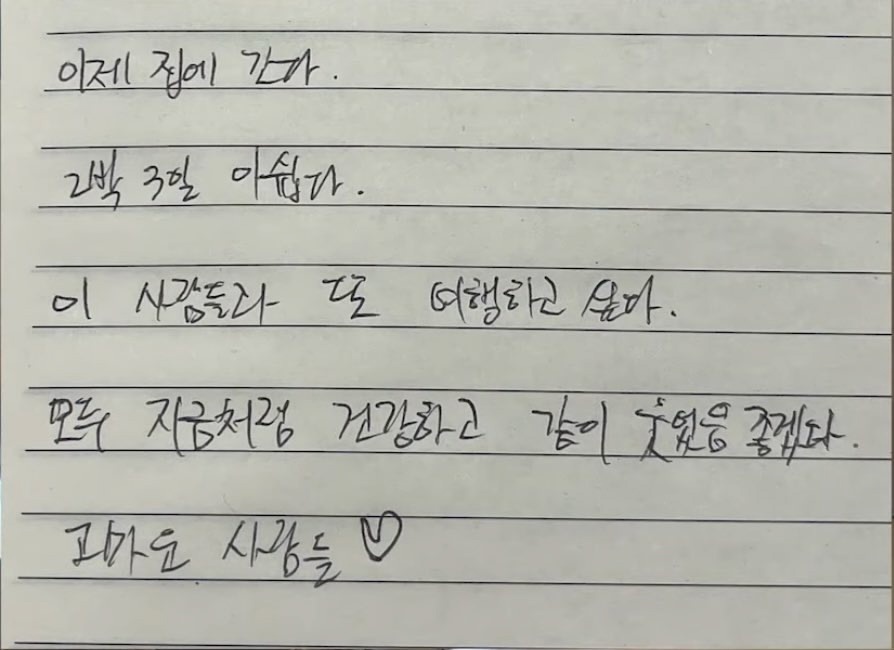 이제 집에 간다.
2박 3일 아쉽다.
이 사람들과 또 여행하고 싶다.
모두 지금처럼 건강하고 같이 웃었음 좋겠다.
고마요 사람들 ♡